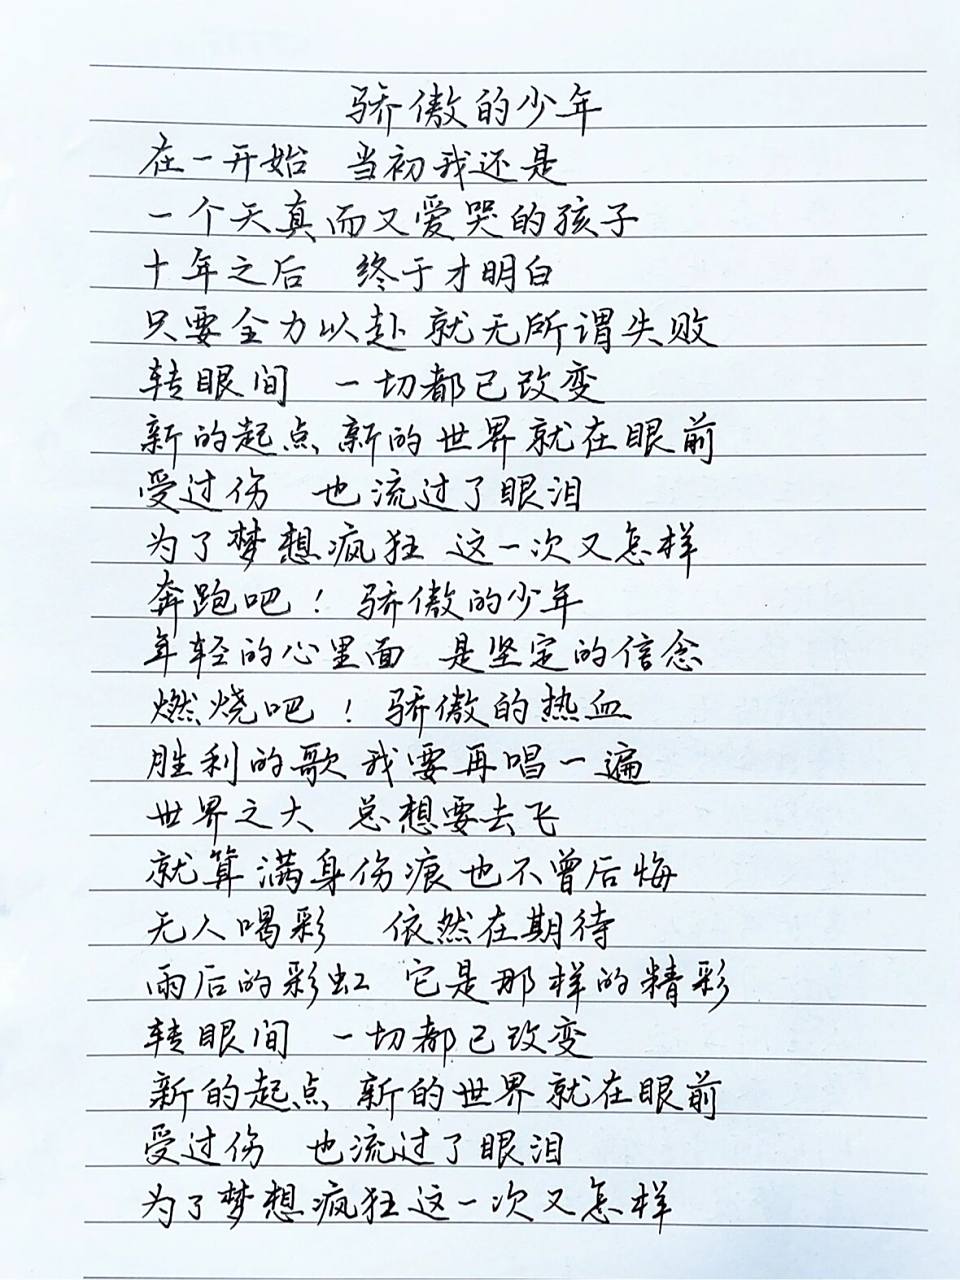 骄傲的少年
在一开始 当初我还是
一个天真而又爱哭的孩子
十年之后 终于才明白
只要全力以赴 就无所谓失败
转眼间 一切都已改变
新的起点 新的世界就在眼前
受过伤 也流过了眼泪
为了梦想疯狂 这一次又怎样
奔跑吧！骄傲的少年
年轻的心里面 是坚定的信念
燃烧吧！骄傲的热血
胜利的歌 我要再唱一遍
世界之大 总想要去飞
就算满身伤痕也不曾后悔
无人喝彩 依然在期待
雨后的彩虹 它是那样的精彩
转眼间 一切都已改变
新的起点 新的世界就在眼前
受过伤 也流过了眼泪
为了梦想疯狂 这一次又怎样